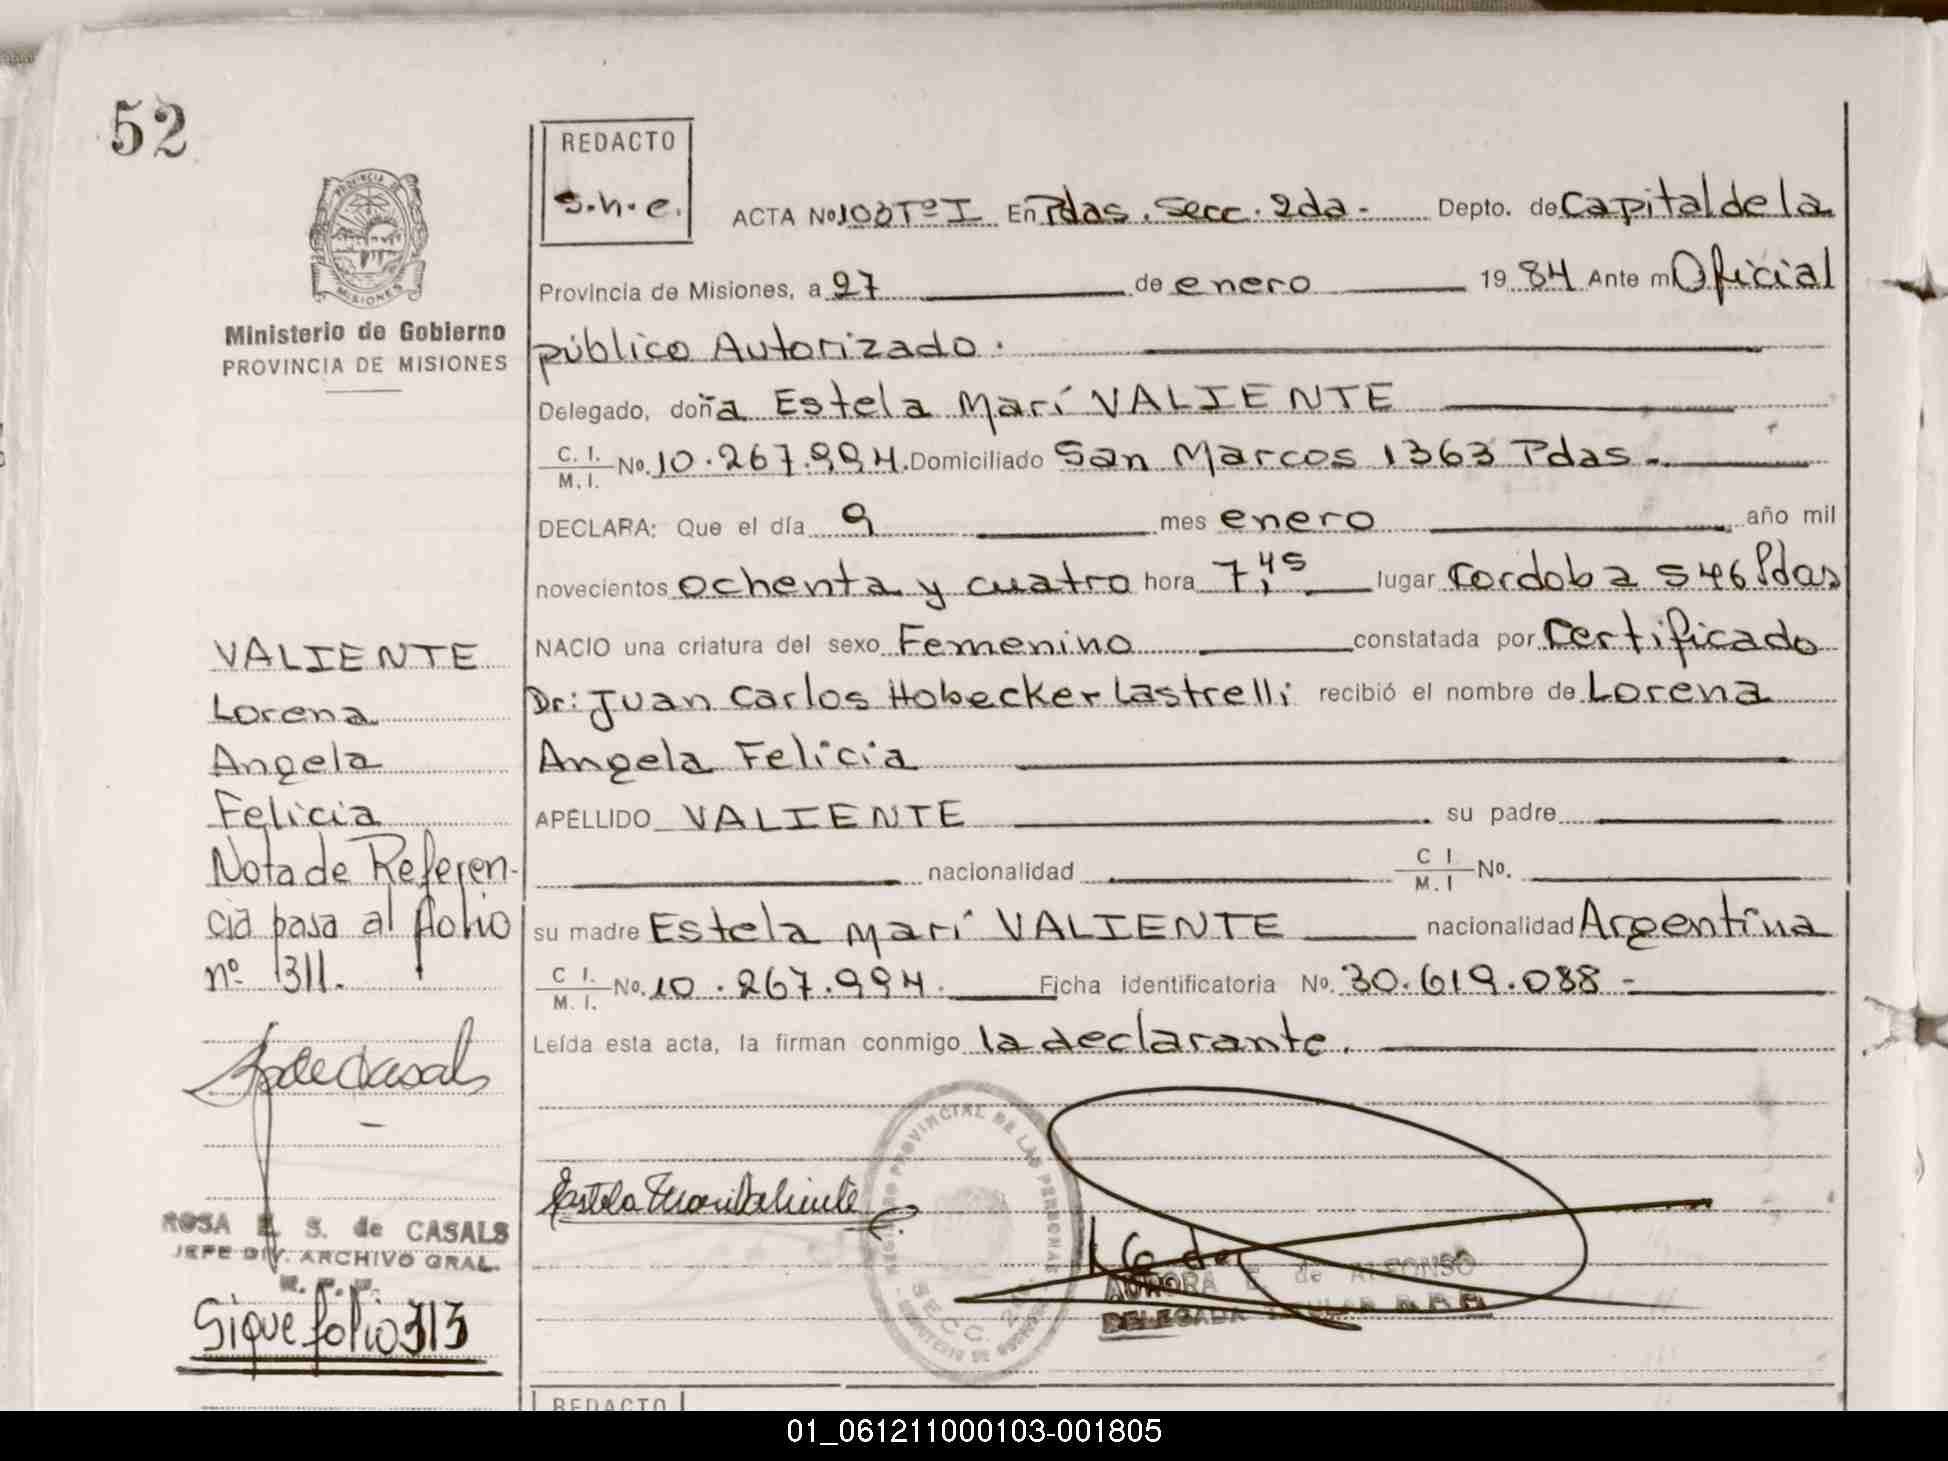 52
REDACTO
S.h.e.
ACTA Nº 103 Tº I En Pdas. Secc. 2da - Depto. de Capital de la
Provincia de Misiones, a 27 de enero 1984 Ante m Oficial
público Autorizado.
Delegado, doña Estela Marí VALIENTE
C. I. M. I. No. 10.267.994. Domiciliado San Marcos 1363 Pdas -
DECLARA: Que el día 9 mes enero año mil
novecientos ochenta y cuatro hora 7,45 lugar Cordoba 546 Pdas
NACIO una criatura del sexo Femenino constatada por Certificado
Dr: Juan Carlos Hobecker Lastrelli recibió el nombre de Lorena
Angela Felicia
APELLIDO VALIENTE su padre
nacionalidad C I M. I No.
su madre Estela Marí VALIENTE nacionalidad Argentina
C I. M. I. No. 10.267.994. Ficha identificatoria No. 30.619.088 -
Leída esta acta, la firman conmigo la declarante.
PROVINCIA DE
MISIONES
Ministerio de Gobierno
PROVINCIA DE MISIONES
VALIENTE
Lorena
Angela
Felicia
Nota de Referen-
cia pasa al folio
nº 311.
ROSA E. S. de CASALS
JEFE DIV. ARCHIVO GRAL.
Sigue folio 313
Estela Mari Valiente
REGISTRO PROVINCIAL DE LAS PERSONAS
SECC. 2
AURORA E. de ALFONSO
DELEGADA TITULAR
REDACTO
01_061211000103-001805